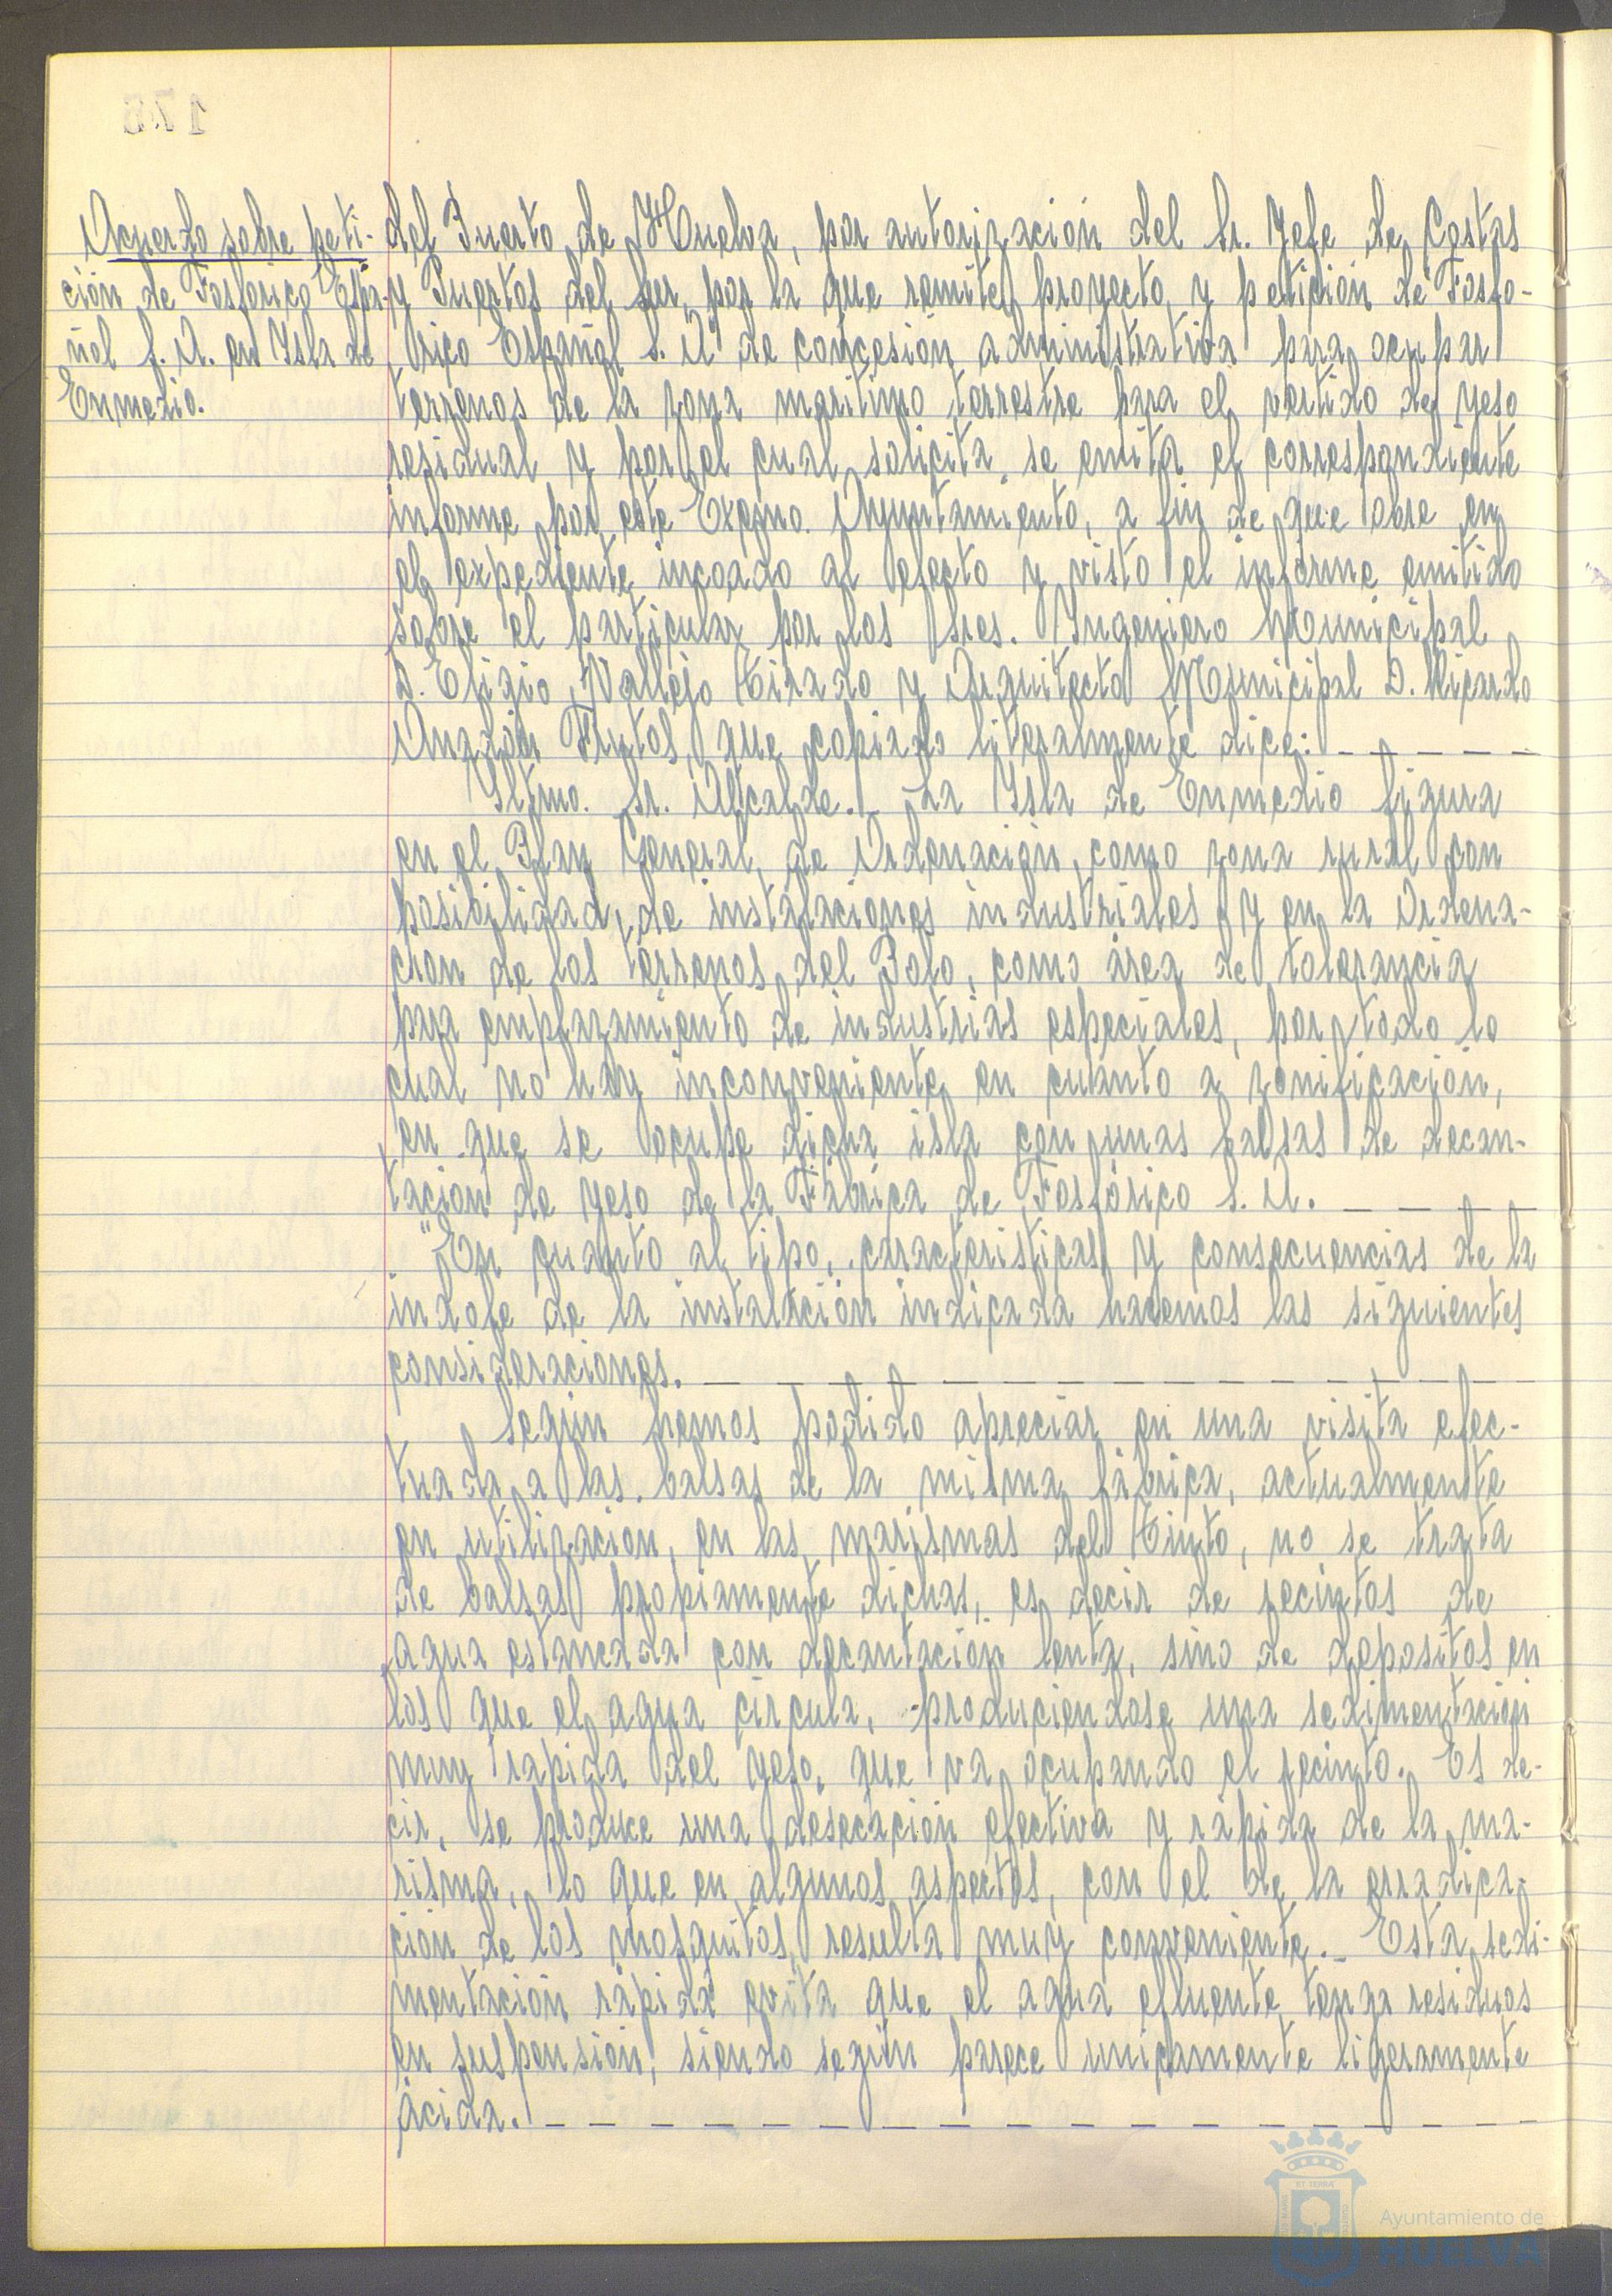 Acuerdo sobre peti-
ción de Fosforico Espa-
ñol S. A. en Isla de
Enmedio.
del Puerto de Huelva, por autorización del Sr. Jefe de Costas
y Puertos del Sur, por la que remite proyecto y petición de "Fosfo-
rico Español S. A" de concesión administrativa para ocupar
terrenos de la zona maritimo terrestre para el vertido de yeso
residual y por el cual solicita se emita el correspondiente
informe por este Excmo. Ayuntamiento, a fin de que obre en
el expediente incoado al efecto y visto el informe emitido
sobre el particular por los Sres. Ingeniero Municipal
D. Eligio Vallejo Tirado y Arquitecto Municipal D. Ricardo
Anadón Frutos, que copiado literalmente dice:
Iltmo. Sr. Alcalde. La Isla de Enmedio figura
en el Plan General de Ordenación, como zona rural con
posibilidad, de instalaciones industriales y en la Ordena-
cion de los terrenos del Polo, como área de tolerancia
para emplazamiento de industrias especiales, por todo lo
cual no hay inconveniente en cuanto a zonificación,
en que se ocupe dicha isla con unas balsas de decan-
tación de yeso de la Fábrica de Fosfórico S. A.
"En cuanto al tipo, caracteristicas y consecuencias de la
indole de la instalación indicada hacemos las siguientes
consideraciones.
Según hemos podido apreciar en una visita efec-
tuada a las balsas de la misma fábrica, actualmente
en utilizacion, en las marismas del Tinto, no se trata
de balsas propiamente dichas, es decir de recintos de
agua estancada con decantación lenta, sino de depositos en
los que el agua circula, produciendose una sedimentación
muy rapida del yeso, que va ocupando el recinto. Es de-
cir, se produce una desecación efectiva y rápida de la ma-
risma, lo que en algunos aspectos, con el de la erradica-
ción de los mosquitos resulta muy conveniente. Esta sedi-
mentación rápida evita que el agua efluente tenga residuos
en suspension, siendo según parece unicamente ligeramente
ácida.
Ayuntamiento de
HUELVA